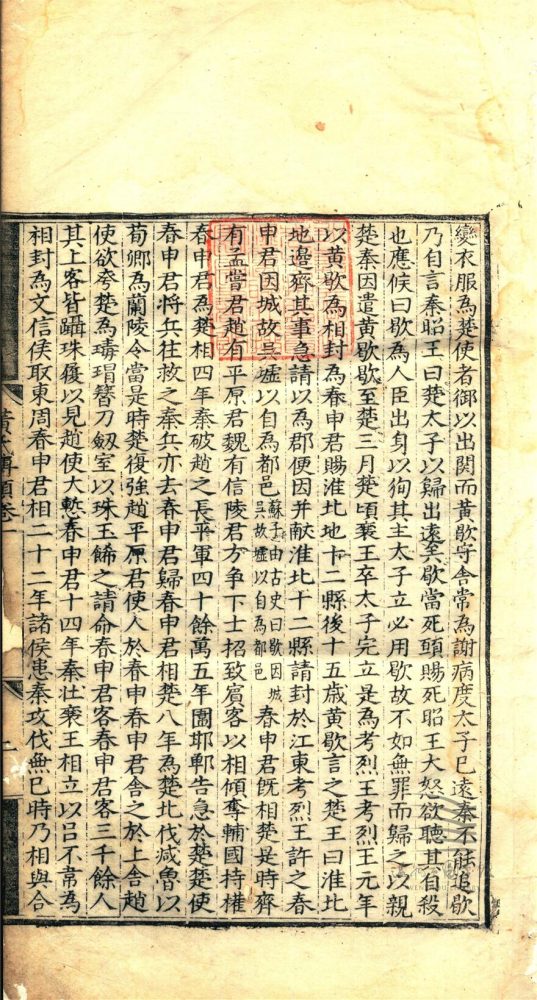 變衣服為楚使者御以出関而黃歇守舍常為謝病度太子已遠秦不能追歇
乃自言秦昭王曰楚太子以歸出遠矣歇當死頭賜死昭王大怒欲聽其自殺
也應候曰歇為人臣出身以狥其主太子立必用歇故不如無罪而歸之以親
楚秦因遣黃歇歇至楚三月楚頃襄王卒太子完立是為考烈王考烈王元年
以黃歇為相封為春申君賜淮北地十二縣後十五歲黃歇言之楚王曰淮北
地邉齊其事急請以為郡便因并献淮北十二縣請封於江東考烈王許之春
申君因城故吳墟以自為都邑蘇子由古史曰歇因城吳故墟以自為都邑春申君旣相楚是時齊
有孟嘗君趙有平原君魏有信陵君方爭下士招致賔客以相傾奪輔國持權
春申君為楚相四年秦破趙之長平軍四十餘萬五年圍邯鄲告急於楚楚使
春申君将兵往救之秦兵亦去春申君歸春申君相楚八年為楚北伐滅魯以
荀卿為蘭陵令當是時楚復強趙平原君使人於春申春申君舍之於上舍趙
使欲夸楚為瑇瑁簪刀劔室以珠玉餙之請命春申君客春申君客三千餘人
其上客皆躡珠履以見趙使大慙春申君十四年秦壮襄王相立以吕不韋為
相封為文信侯取東周春申君相二十二年諸侯患秦攻伐無已時乃相與合